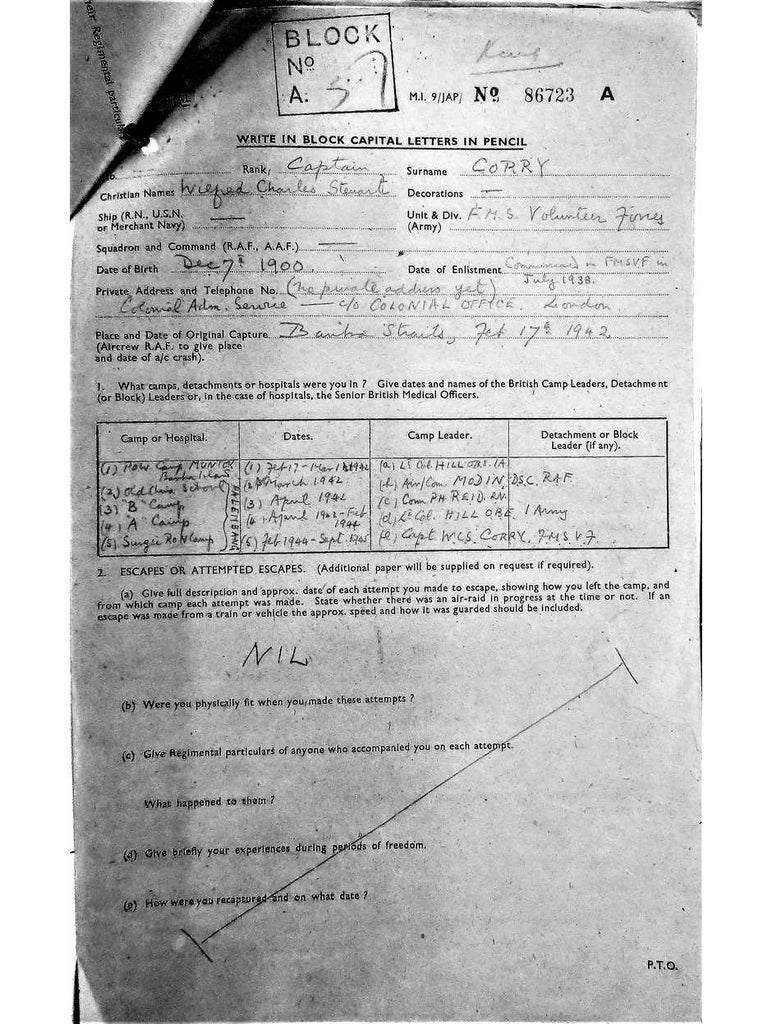 their Regimental particulars
BLOCK
Nº
A. 57
M.I. 9/JAP/ Nº 86723 A
WRITE IN BLOCK CAPITAL LETTERS IN PENCIL
Rank, Captain Surname CORRY
Christian Names Wilfred Charles Steuart Decorations —
Ship (R.N., U.S.N. or Merchant Navy) — Unit & Div. (Army) F.M.S. Volunteer Forces
Squadron and Command (R.A.F., A.A.F.) —
Date of Birth Dec 7th 1900. Date of Enlistment Commissioned in FMSVF in July 1938.
Private Address and Telephone No. (no private address yet)
Colonial Adm. Service — c/o COLONIAL OFFICE. London.
Place and Date of Original Capture Banka Straits, Feb 17th 1942
(Aircrew R.A.F. to give place
and date of a/c crash).
1. What camps, detachments or hospitals were you in ? Give dates and names of the British Camp Leaders, Detachment
(or Block) Leaders or, in the case of hospitals, the Senior British Medical Officers.
Camp or Hospital. Dates. Camp Leader. Detachment or Block Leader (if any).
(1) POW Camp MUNTOK Banka Island (1) Feb 17 - Mar 1942 (a) Lt Col. HILL OBE. IA
(2) Old China School (2) March 1942 (b) Air/Com. MODIN, DSC. RAF.
(3) "B" Camp (3) April 1942 (c) Com PH REID. RN.
(4) "A" Camp (4) April 1942 - Feb 1944 (d) Lt Col. HILL OBE I Army
(5) Sungie Ron Camp (5) Feb 1944 - Sept 1945 (e) Capt W.C.S. CORRY, FMSVF.
PALEMBANG
2. ESCAPES OR ATTEMPTED ESCAPES. (Additional paper will be supplied on request if required).
(a) Give full description and approx. date of each attempt you made to escape, showing how you left the camp, and
from which camp each attempt was made. State whether there was an air-raid in progress at the time or not. If an
escape was made from a train or vehicle the approx. speed and how it was guarded should be included.
NIL
(b) Were you physically fit when you made these attempts ?
(c) Give Regimental particulars of anyone who accompanied you on each attempt.
What happened to them ?
(d) Give briefly your experiences during periods of freedom.
(e) How were you recaptured and on what date ?
P.T.O.